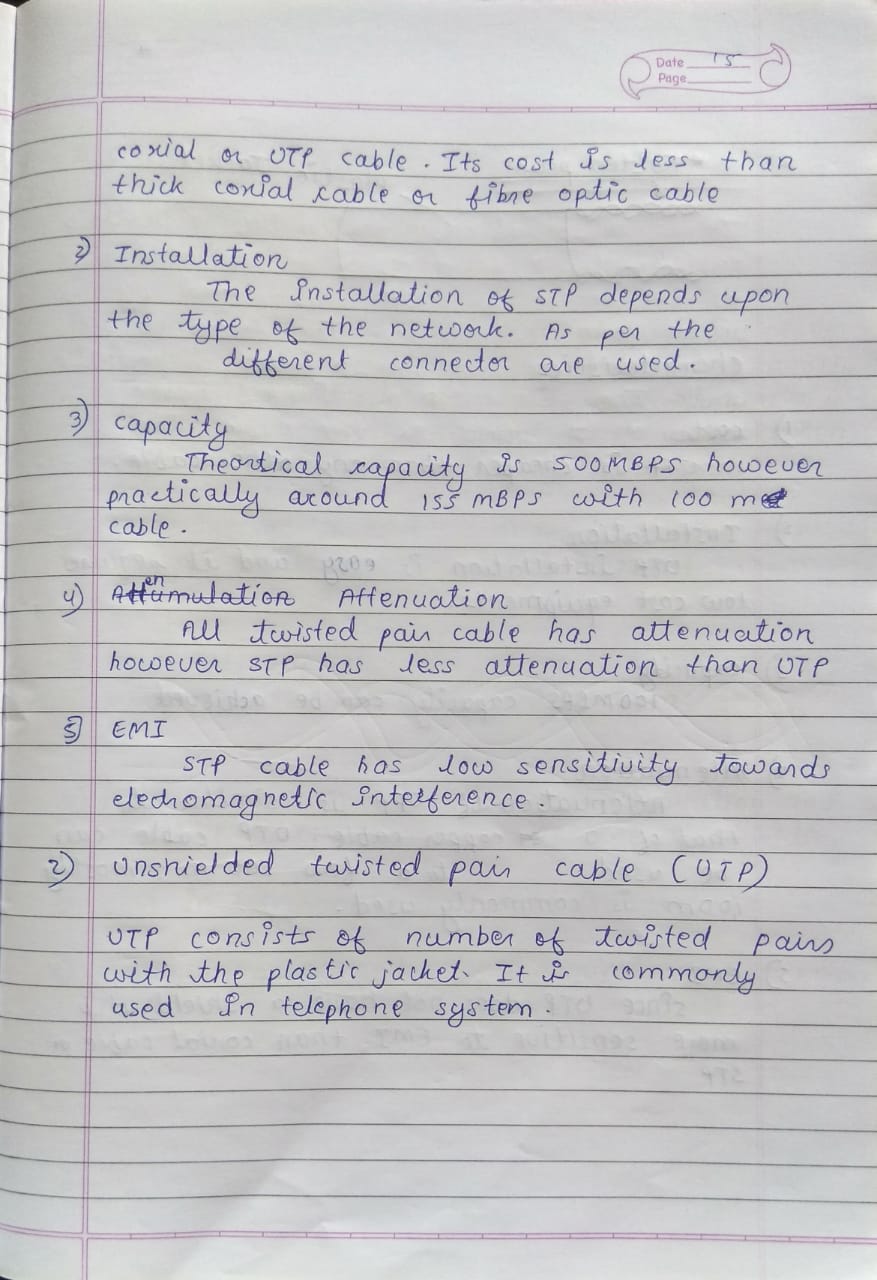 Date 15
Page
coxial or UTP cable. Its cost is less than
thick coxial cable or fibre optic cable
2) Installation
The installation of STP depends upon
the type of the network. As per the
different connector are used.
3) capacity
Theortical capacity is 500MBPS however
practically around 155 MBPS with 100 met
cable.
4) Attenuation
All twisted pair cable has attenuation
however STP has less attenuation than UTP
5) EMI
STP cable has low sensitivity towards
elechomagnetic interference.
2) Unshielded twisted pair cable (UTP)
UTP consists of number of twisted pairs
with the plastic jacket. It is commonly
used in telephone system.